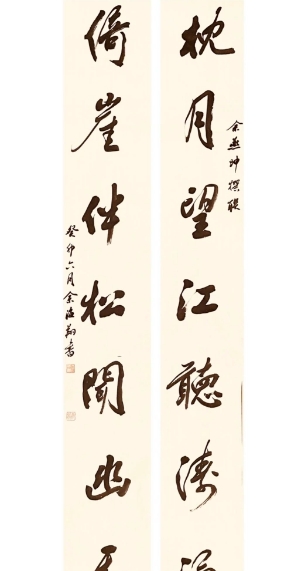 枕月望江聽濤
余燕坤撰聯
倚崖伴松聞幽
癸卯六月余
書